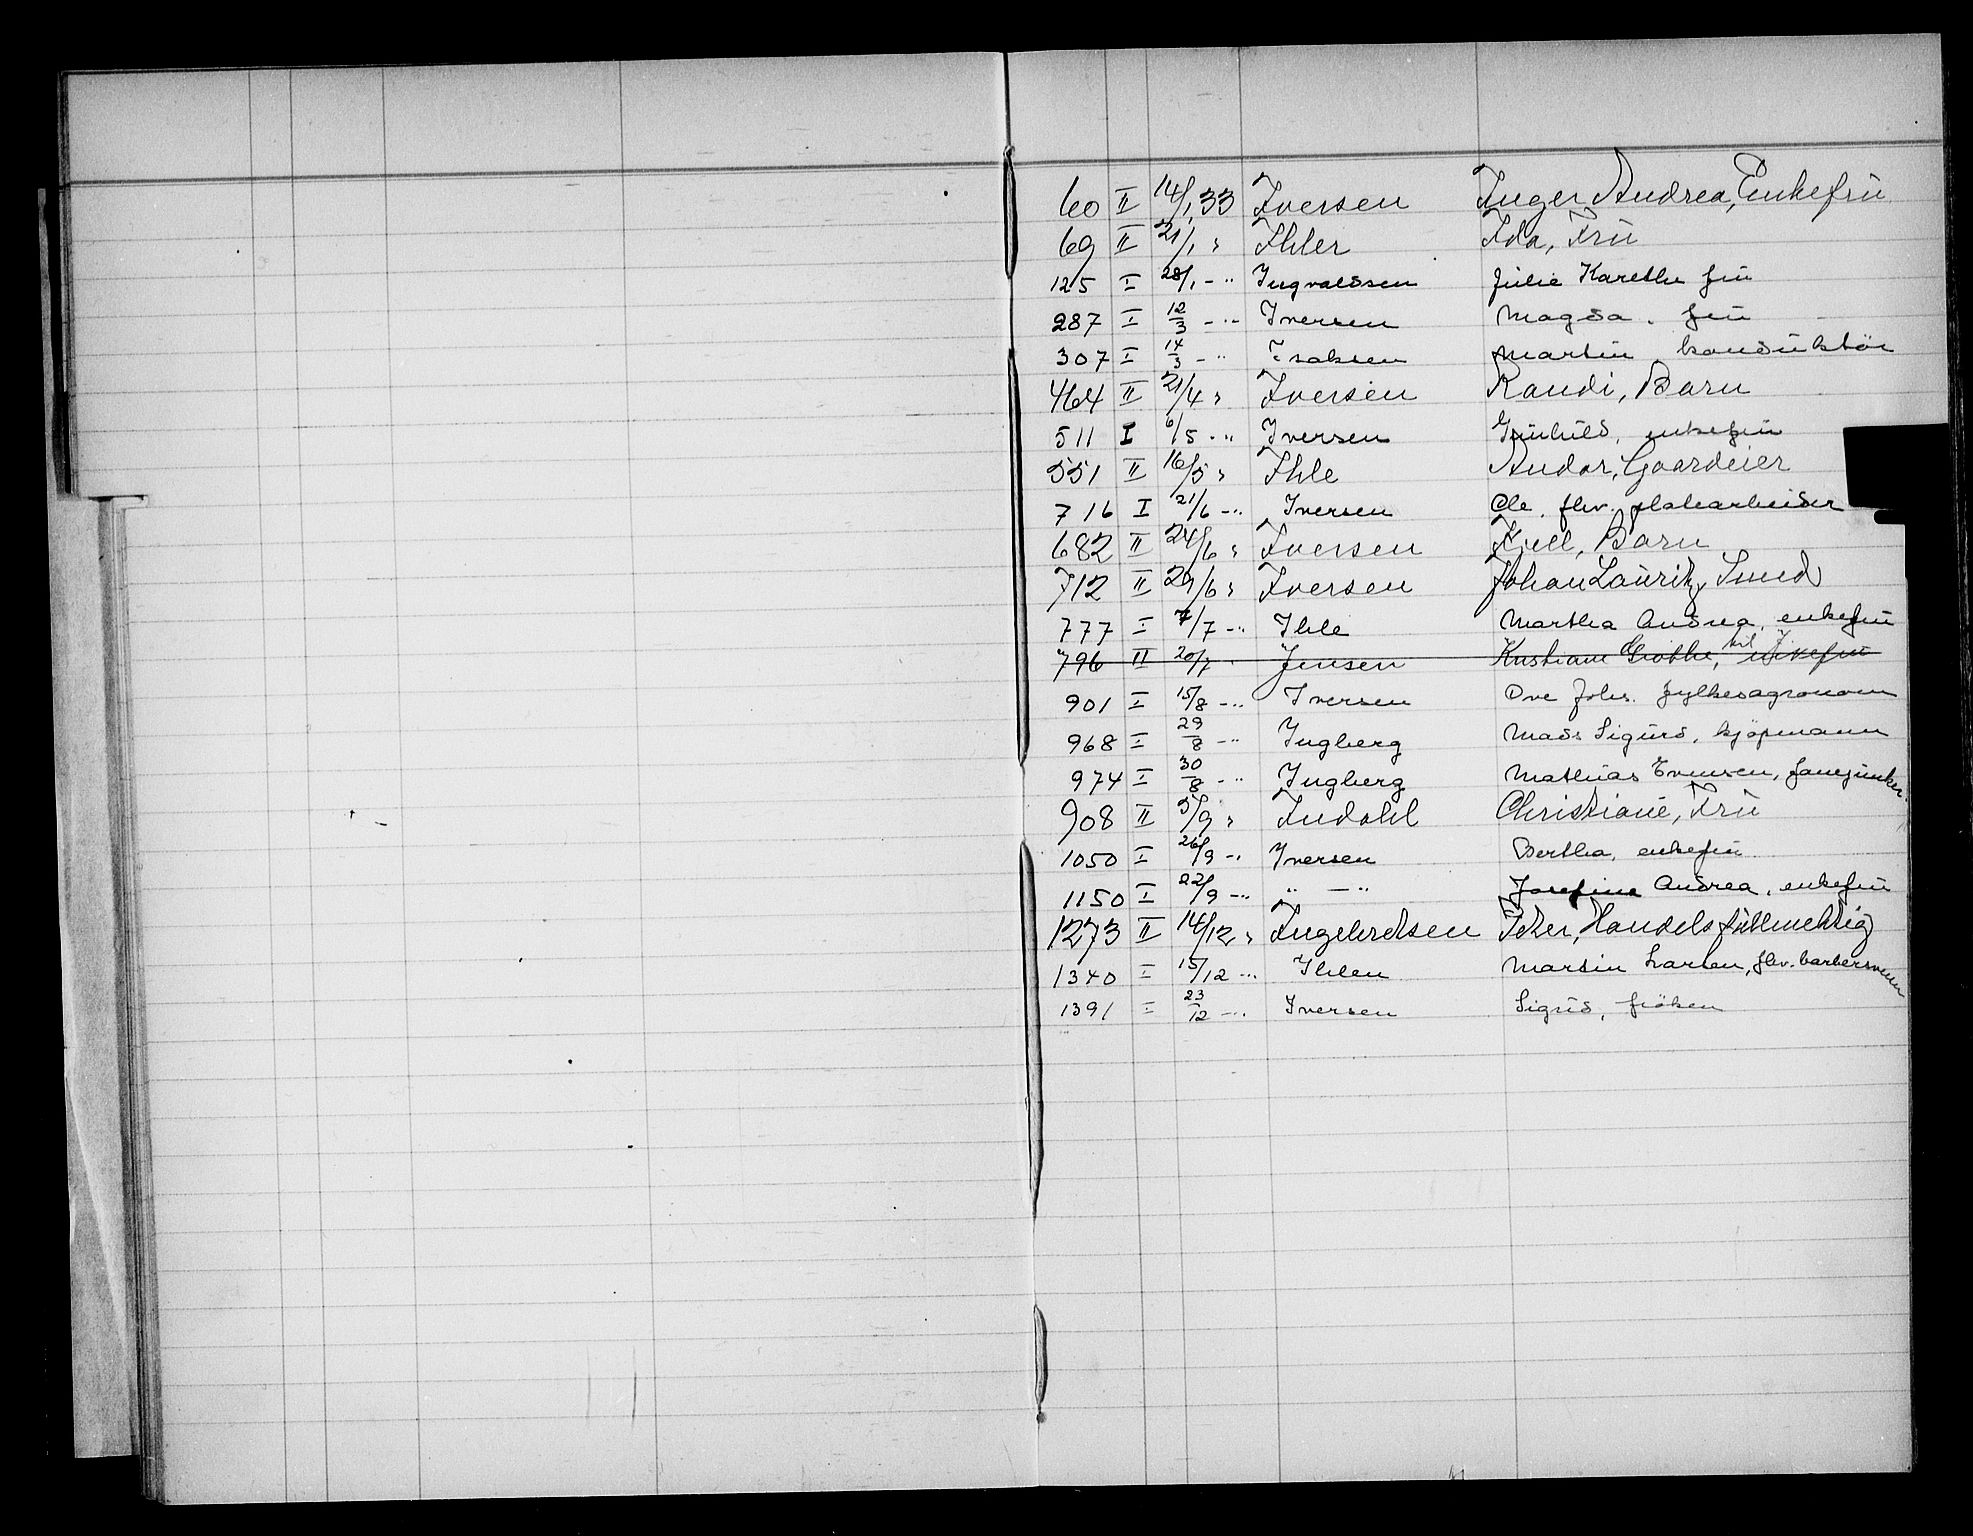 60 II 14/1 33 Iversen Inger Andrea, Enkefru
69 II 21/1 " Ihler Ida, Fru
125 I 28/1 - " Ingvaldsen Julie Karethe fru
287 I 12/3 - " - Iversen Magda. fru
307 I 14/3 - " Isaksen Martin konduktör
464 II 21/4 " Iversen Randi, Barn
511 I 6/5 - " Iversen Gunhild, enkefru
551 II 16/5 " Ihle Andor, Gaardeier
716 I 21/6 - " Iversen Ole. fhv. platearbeider
682 II 24/6 " Iversen Kjell, Barn
712 II 29/6 " Iversen Johan Lauritz, Smed
777 I 7/7 - " Ihle Martha Andrea, enkefru
796 II 20/7 " Jensen Kristiane Grothe,
901 I 15/8 - " Iversen Ove Johs. fylkesagronom
968 I 29/8 - " Ingberg Mads Sigurd, kjøpmann
974 I 30/8 - " Ingberg Mathias Evensen, fanejunker.
908 II 5/9 " Indahl Christiane, Fru
1050 I 26/9 - " Iversen Bertha, enkefru
1150 I 22/9 - " " - " Josefine Andrea, enkefru
1273 II 14/12 " Ingebretsen Peter, Handelsfullmektig
1340 I 15/12 - " Ihlen Martin Larsen, fhv. barbersvenn
1391 I 23/12 - " Iversen Sigrid, frøken